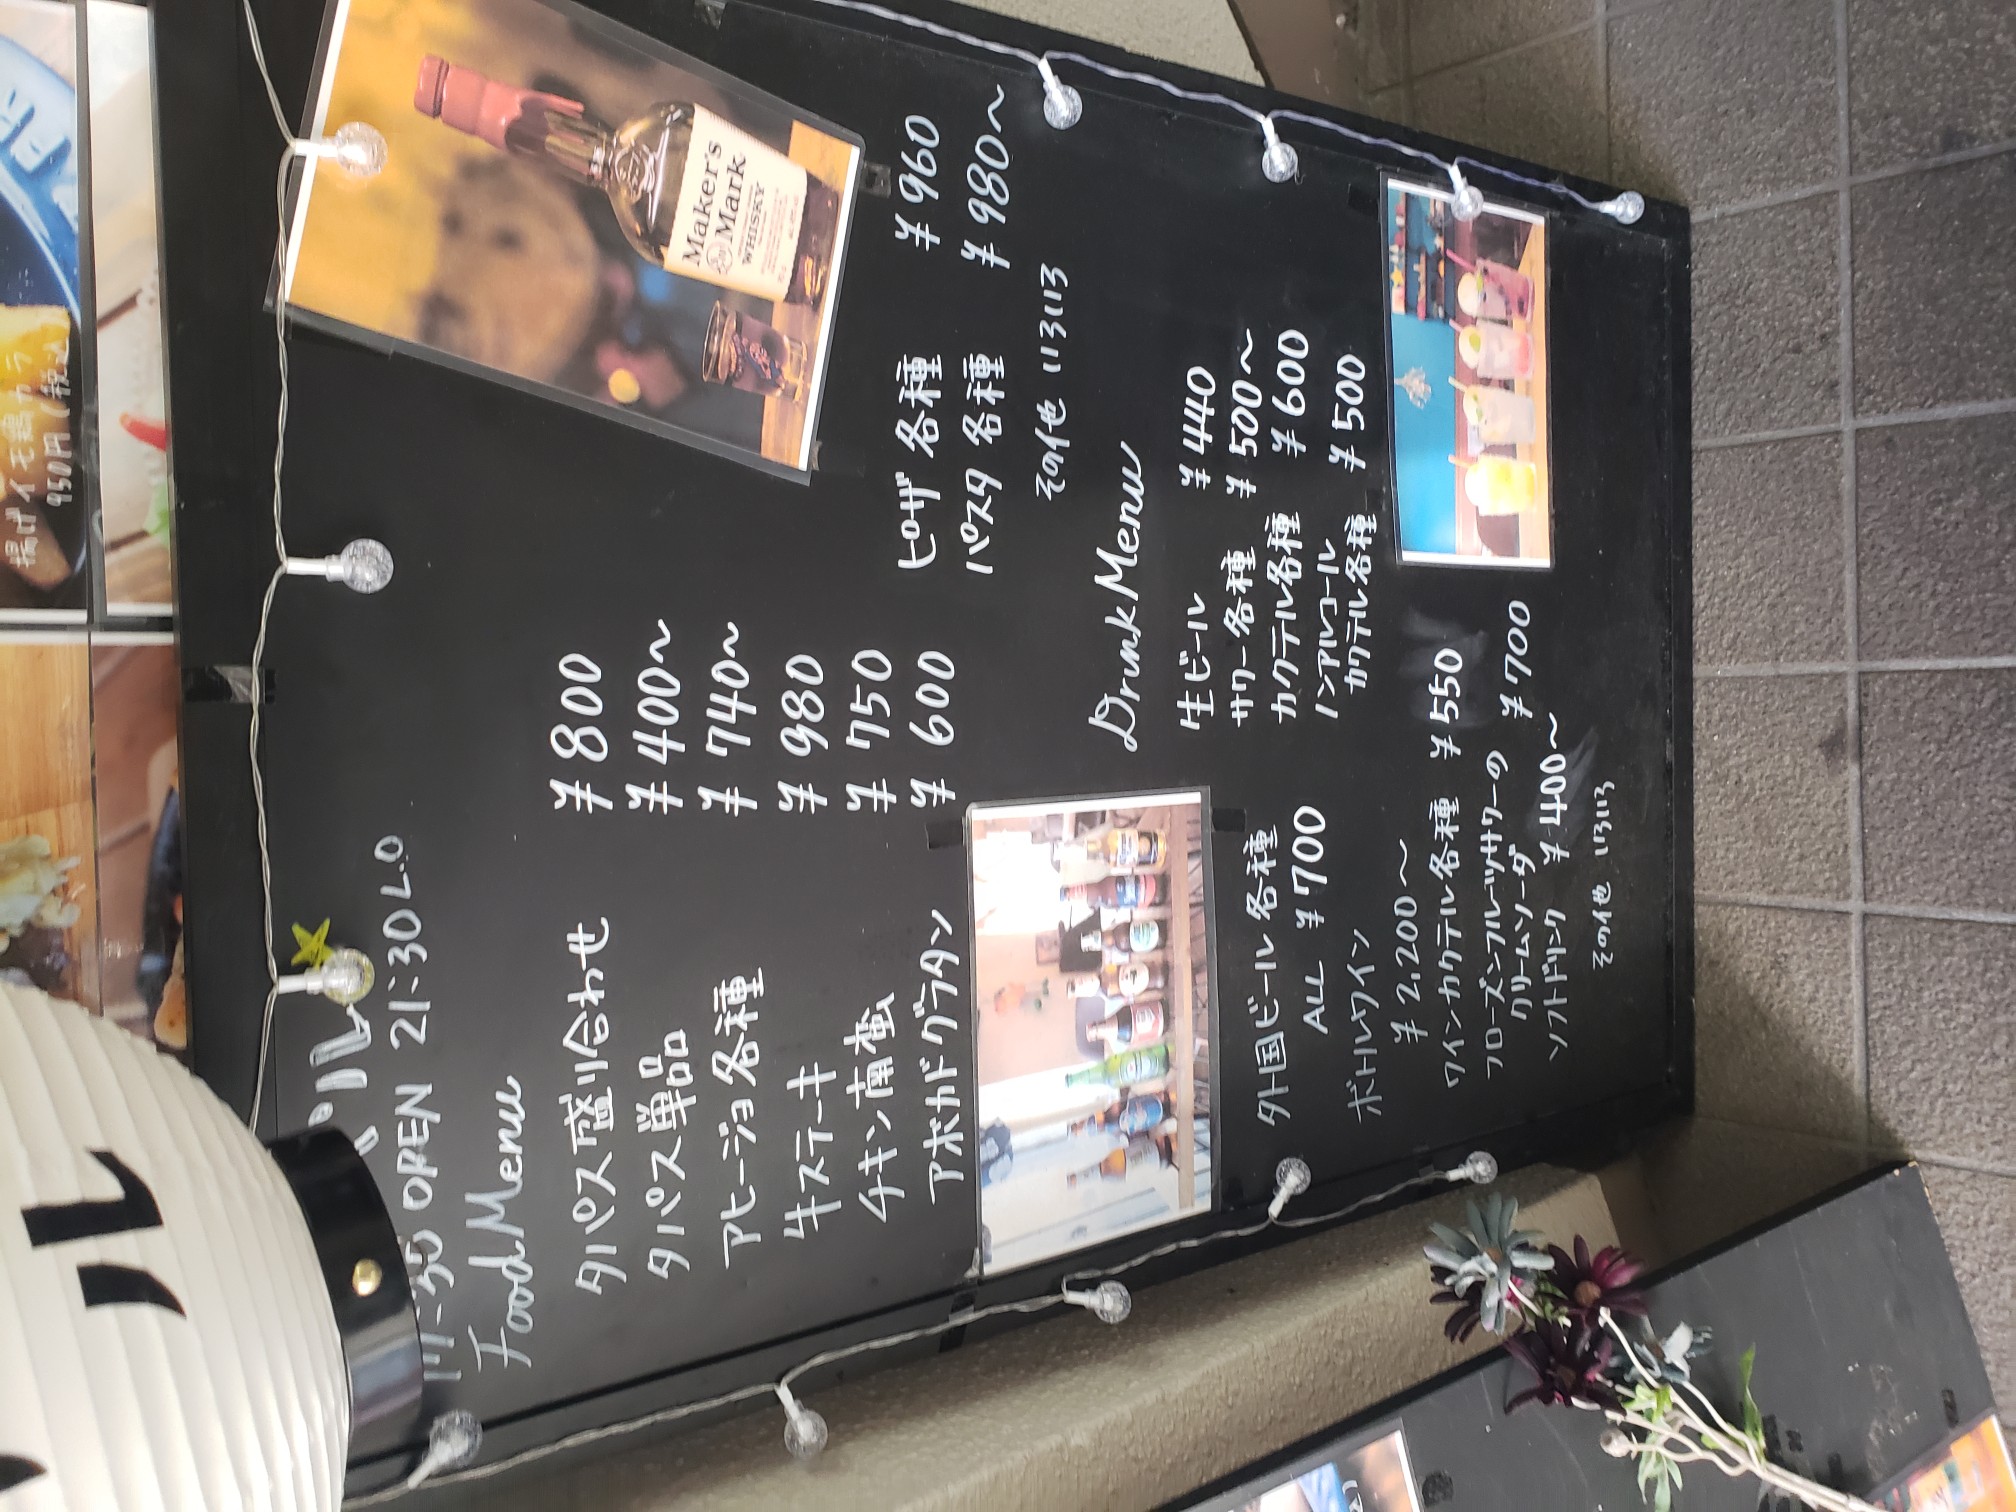 17:30 OPEN 21:30 L.O
Food Menu
タパス盛り合わせ ¥800
タパス単品 ¥400〜
アヒージョ各種 ¥740〜
牛ステーキ ¥980
チキン南蛮 ¥750
アボカドグラタン ¥600
ピザ 各種 ¥960
パスタ 各種 ¥980〜
その他 いろいろ
Maker's
Mark
WHISKY
Drink Menu
生ビール ¥440
サワー各種 ¥500〜
カクテル各種 ¥600
ノンアルコール
カクテル各種 ¥500
外国ビール各種
ALL ¥700
ボトルワイン
¥2,200〜
ワインカクテル各種 ¥550
フローズンフルーツサワーの
クリームソーダ ¥700
ソフトドリンク ¥400〜
その他 いろいろ
揚げイモ鶏カラ
950円